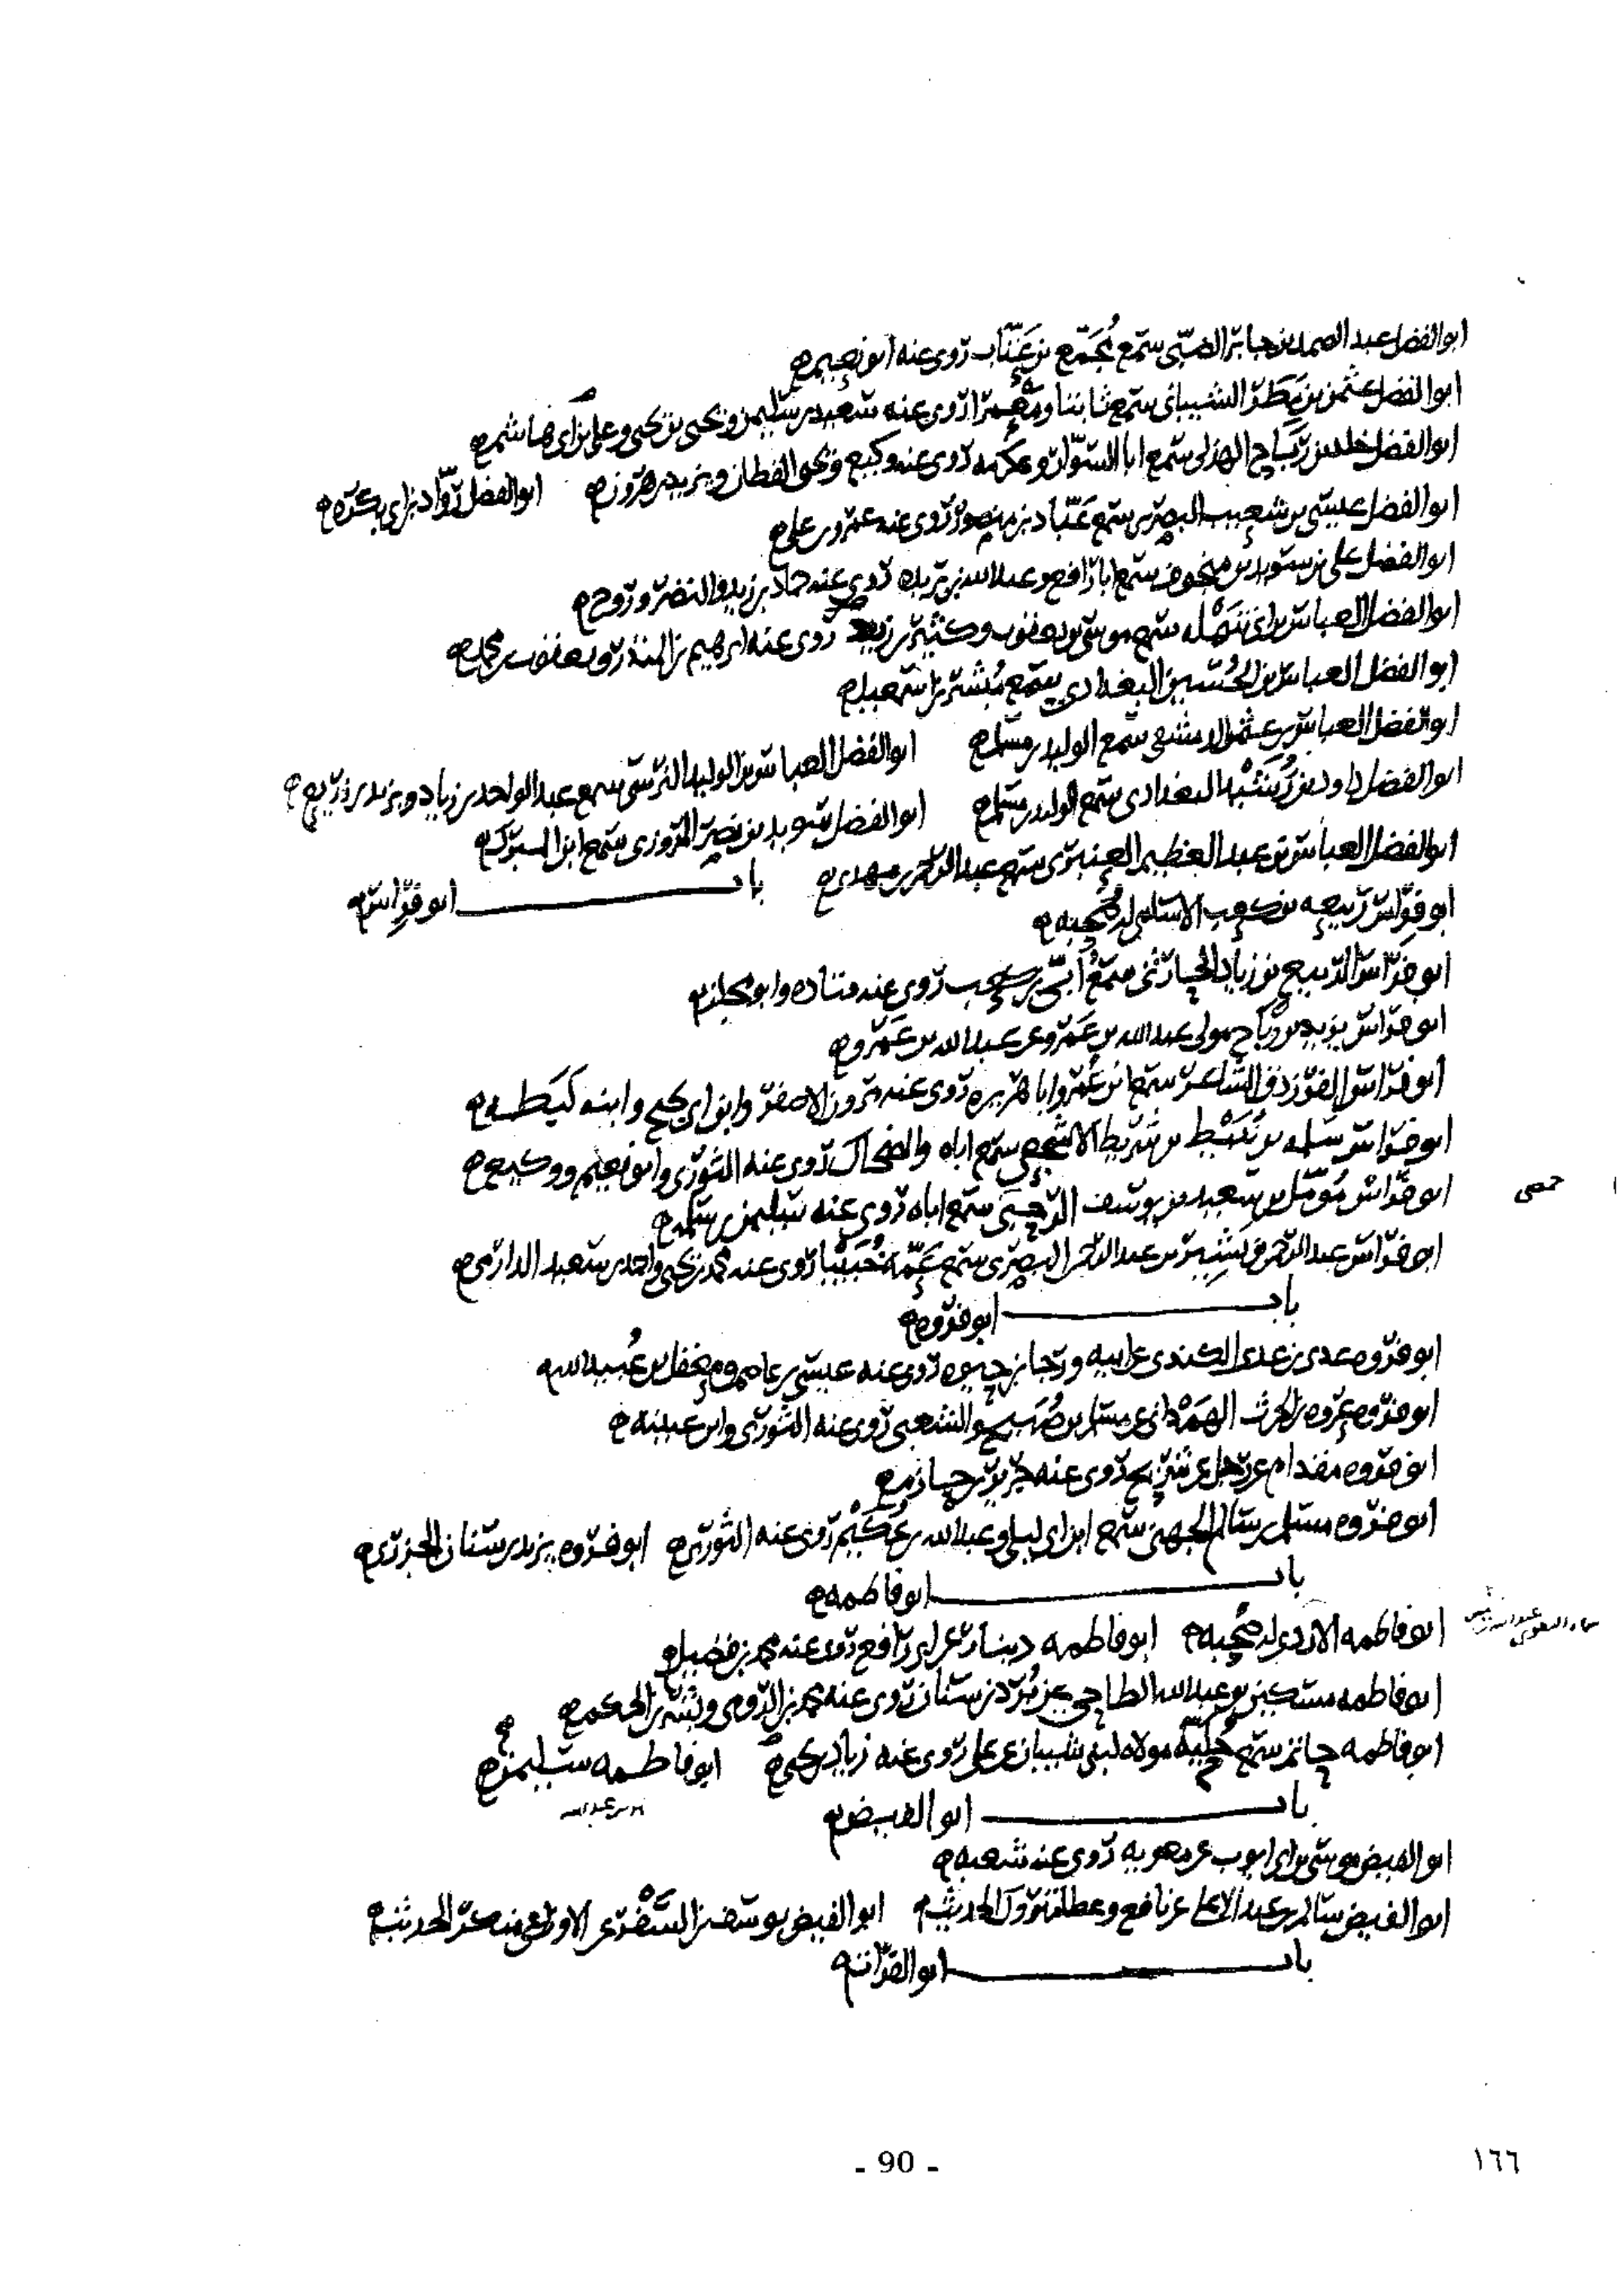 ابو الفضل عبد الصمد بن جابر الضبى سمع مُجَمّع بن عَتّاب روى عنه ابو نعيم
ابو الفضل عثمن بن مَطَر الشيبانى سمع ثابتا ومَعْمرا روى عنه سعيد بن سليمن ويحيى بن يحيى وعلى بن ابى هاشم
ابو الفضل خلد بن رَبَاح الهذلى سمع ابا السوّار وعكرمه روى عنه وكيع ويحيى القطان ويزيد بن هرون ابو الفضل روّاد بن ابى بكره
ابو الفضل عيسى بن شعيب البصرى سمع عَبّاد بن منصور روى عنه عمرو بن على
ابو الفضل على بن سويد بن منجوف سمع ابا رافع وعبد الله بن بريده روى عنه حماد بن زيد والنضر وروح
ابو الفضل العباس بن ابى شَمْله سمع موسى بن يعقوب وكثير بن زيد روى عنه ابرهيم بن المنذر ويعقوب بن محمد
ابو الفضل العباس بن الحُسين البغدادى سمع مُبشر بن اسمعيل
ابو الفضل العباس بن عثمن الدمشقى سمع الوليد بن مسلم ابو الفضل العباس بن الوليد النرسى سمع عبد الواحد بن زياد ويزيد بن زريع
ابو الفضل داود بن رُشَيْد البغدادى سمع الوليد بن مسلم ابو الفضل سويد بن نصر المروزى سمع ابن المبرك
ابو الفضل العباس بن عبد العظيم العنبرى سمع عبد الرحمن بن مهدى باب ابو فِرَاس
ابو فِرَاس ربيعه بن كعب الاسلمى له صُحبه
ابو فِرَاس الربيع بن زياد الحارثى سمع أُبَىّ بن كعب روى عنه قتاده وابو مجلز
ابو فراس يزيد بن رباح مولى عبد الله بن عَمْرو عن عبد الله بن عَمْرو
ابو فراس الفرزدق الشاعر سمع ابن عُمر وابا هريره روى عنه مرون الاصفر وابن ابى نجيح وابنه لَبَطه
ابو فراس سلمه بن نُبَيْط بن شريط الاشجعى سمع اباه والضحاك روى عنه الثورى وابو نعيم ووكيع
ابو فراس مُؤمّل بن سعيد بن يوسف الرحبى سمع اباه روى عنه سليمن بن سلمه
حمصى
ابو فراس عبد الرحمن بن بشير بن عبد الرحمن البصرى سمع عَمّه خُبَيْبا روى عنه محمد بن يحيى واحمد بن سعيد الدارمى
باب ابو فروه
ابو فروه عدى بن عدى الكندى عن ابيه ورجا بن حيوه روى عنه عيسى بن عاصم ومعقل بن عُبيد الله
ابو فروه عروه بن الحرث الهَمْدانى عن مسلم بن صُبَيح والشعبى روى عنه الثورى وابن عيينه
ابو فروه مقدام عن رجل عن شريح روى عنه جرير بن حازم
ابو فروه مسلم بن سالم الجهنى سمع ابن ابى ليلى وعبد الله بن عُكَيْم روى عنه الثورى ابو فروه يزيد بن سنان الجزرى
باب ابو فاطمه
ابو فاطمه الازدى له صُحبه ابو فاطمه دينار عن ابى رافع روى عنه محمد بن فضيل
ابو فاطمه مسكين بن عبد الله الطاحى عن بُرد بن سنان روى عنه محمد بن الرومى وبشر بن الحكم
ابو فاطمه حاتم سمع مولاه لبنى شيبان عن على روى عنه زياد بن يحيى ابو فاطمه سليمن
بن عبد الله
باب ابو الفيض
ابو الفيض موسى بن ابى ايوب عن معويه روى عنه شعبه
ابو الفيض سالم بن عبد الاعلى عن نافع وعطا متروك الحديث ابو الفيض يوسف بن السَّفْر عن الاوزاعى منكر الحديث
باب ابو القراثه
- 90 -
١٦٦